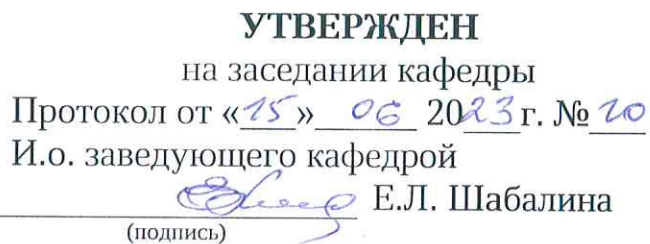 УТВЕРЖДЕН
на заседании кафедры
Протокол от «15» 06 2023 г. № 10
И.о. заведующего кафедрой
Е.Л. Шабалина
(подпись)